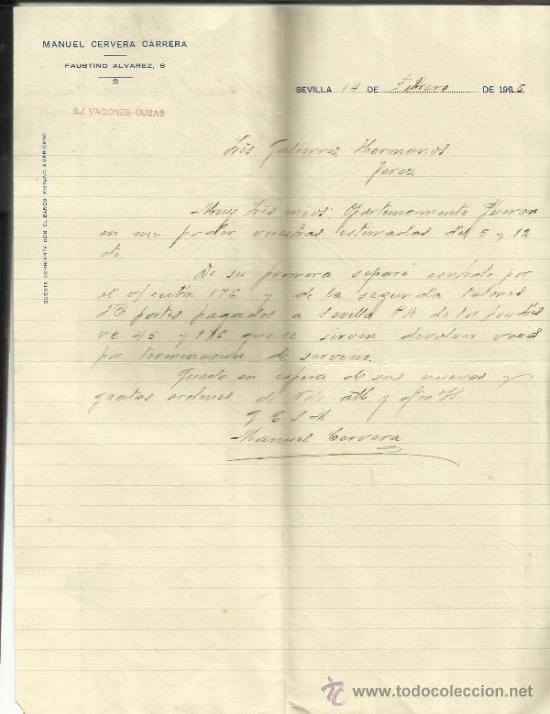 MANUEL CERVERA CARRERA
FAUSTINO ALVAREZ, 6
S/. VAGONES-CUBAS
SEVILLA 14 DE Febrero DE 1925
CUENTA CORRIENTE CON EL BANCO HISPANO AMERICANO
Sres Gutierrez Hermanos
Jerez
Muy Sres mios: Oportunamente fueron
en mi poder vuestras estimadas del 5 y 12
de.
De su primera separé contrato por
el v/ cuba 176 y de la segunda talones
portes pagados a Sevilla P.A. de los foudres
45 y 176 que se sirven devolver vacios
por terminacion de servicio.
Quedo en espera de sus nuevas y
gratas ordenes de Vds att y
q e s m
Manuel Cervera
www.todocoleccion.net